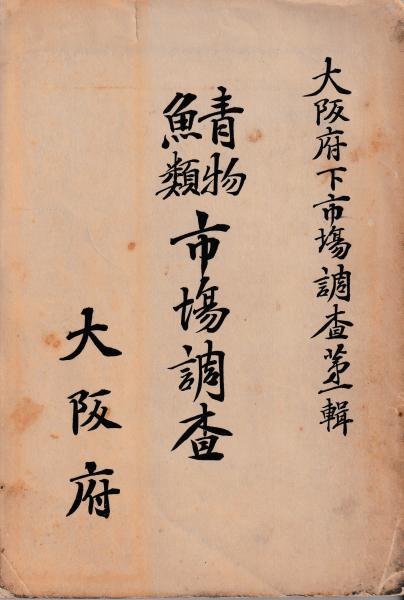 大阪府下市場調査第一輯
青物
魚類
市場調査
大阪府